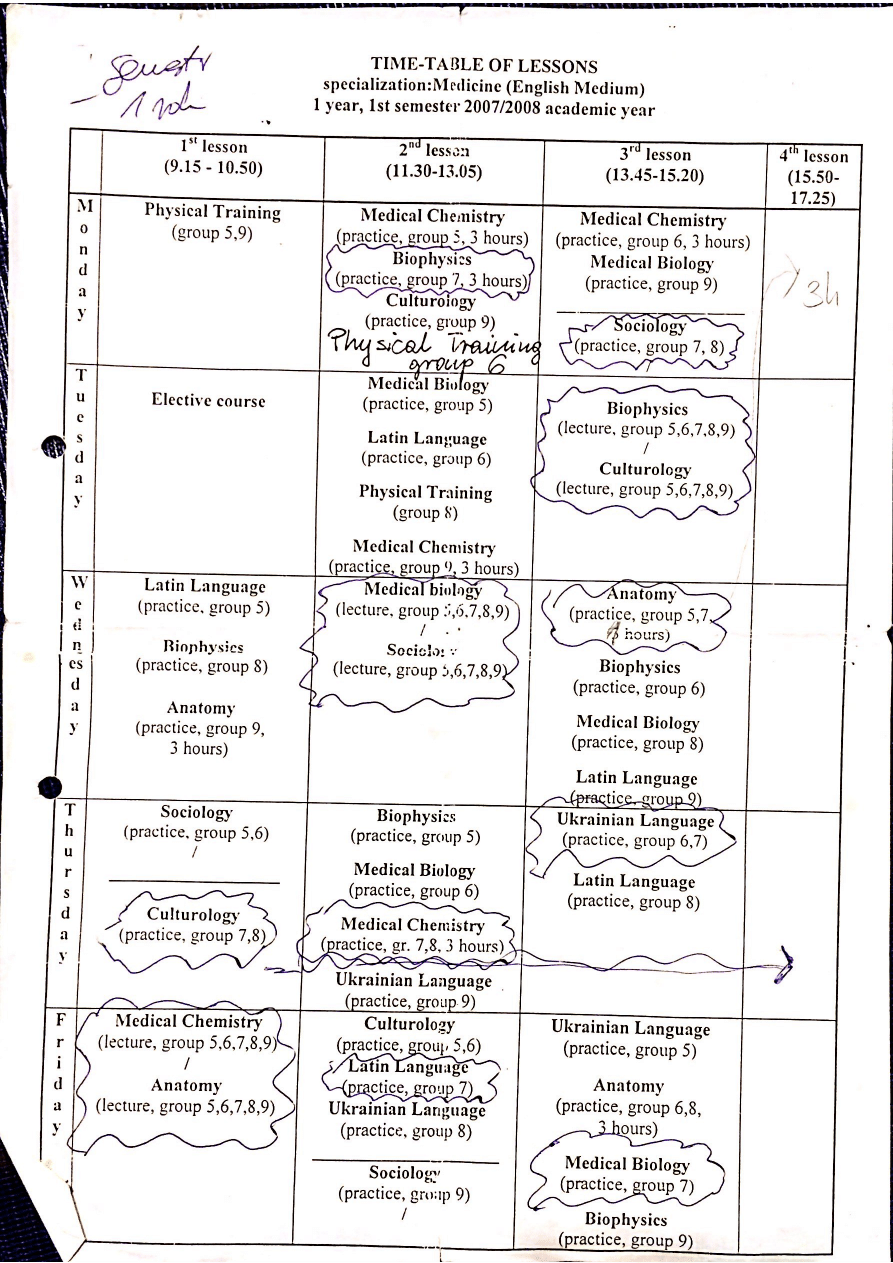 TIME-TABLE OF LESSONS
specialization:Medicine (English Medium)
1 year, 1st semester 2007/2008 academic year
1st lesson
(9.15 - 10.50)
2nd lesson
(11.30-13.05)
3rd lesson
(13.45-15.20)
4th lesson
(15.50-
17.25)
Monday
Physical Training
(group 5,9)
Medical Chemistry
(practice, group 5, 3 hours)
Biophysics
(practice, group 7, 3 hours)
Culturology
(practice, group 9)
Physical Training
group 6
Medical Chemistry
(practice, group 6, 3 hours)
Medical Biology
(practice, group 9)
Sociology
(practice, group 7, 8)
/
3h
Tuesday
Elective course
Medical Biology
(practice, group 5)
Latin Language
(practice, group 6)
Physical Training
(group 8)
Medical Chemistry
(practice, group 9, 3 hours)
Biophysics
(lecture, group 5,6,7,8,9)
/
Culturology
(lecture, group 5,6,7,8,9)
Wednesday
Latin Language
(practice, group 5)
Biophysics
(practice, group 8)
Anatomy
(practice, group 9,
3 hours)
Medical biology
(lecture, group 5,6,7,8,9)
/
Sociology
(lecture, group 5,6,7,8,9)
Anatomy
(practice, group 5,7,
hours)
Biophysics
(practice, group 6)
Medical Biology
(practice, group 8)
Latin Language
(practice, group 9)
Thursday
Sociology
(practice, group 5,6)
/
Culturology
(practice, group 7,8)
Biophysics
(practice, group 5)
Medical Biology
(practice, group 6)
Medical Chemistry
(practice, gr. 7,8, 3 hours)
Ukrainian Language
(practice, group 9)
Ukrainian Language
(practice, group 6,7)
Latin Language
(practice, group 8)
Friday
Medical Chemistry
(lecture, group 5,6,7,8,9)
/
Anatomy
(lecture, group 5,6,7,8,9)
Culturology
(practice, group 5,6)
Latin Language
(practice, group 7)
Ukrainian Language
(practice, group 8)
Sociology
(practice, group 9)
/
Ukrainian Language
(practice, group 5)
Anatomy
(practice, group 6,8,
3 hours)
Medical Biology
(practice, group 7)
Biophysics
(practice, group 9)